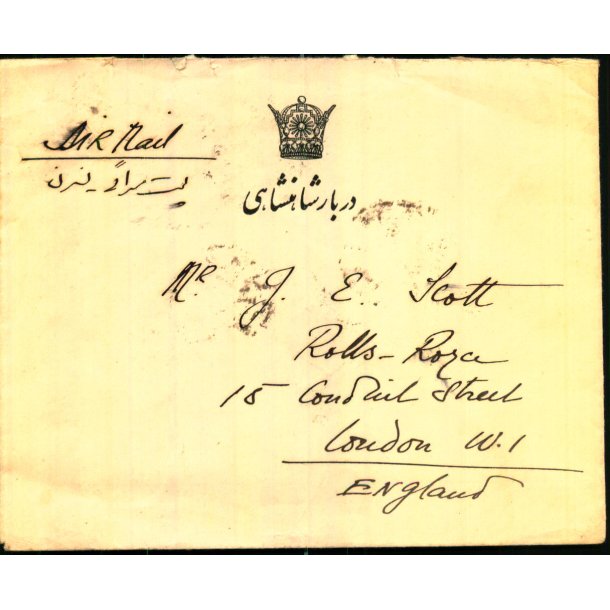 Air Mail
پست هوائی - لندن
دربار شاهنشاهی
Mr J. E. Scott
Rolls-Royce
15 Conduit Street
London W.1
England